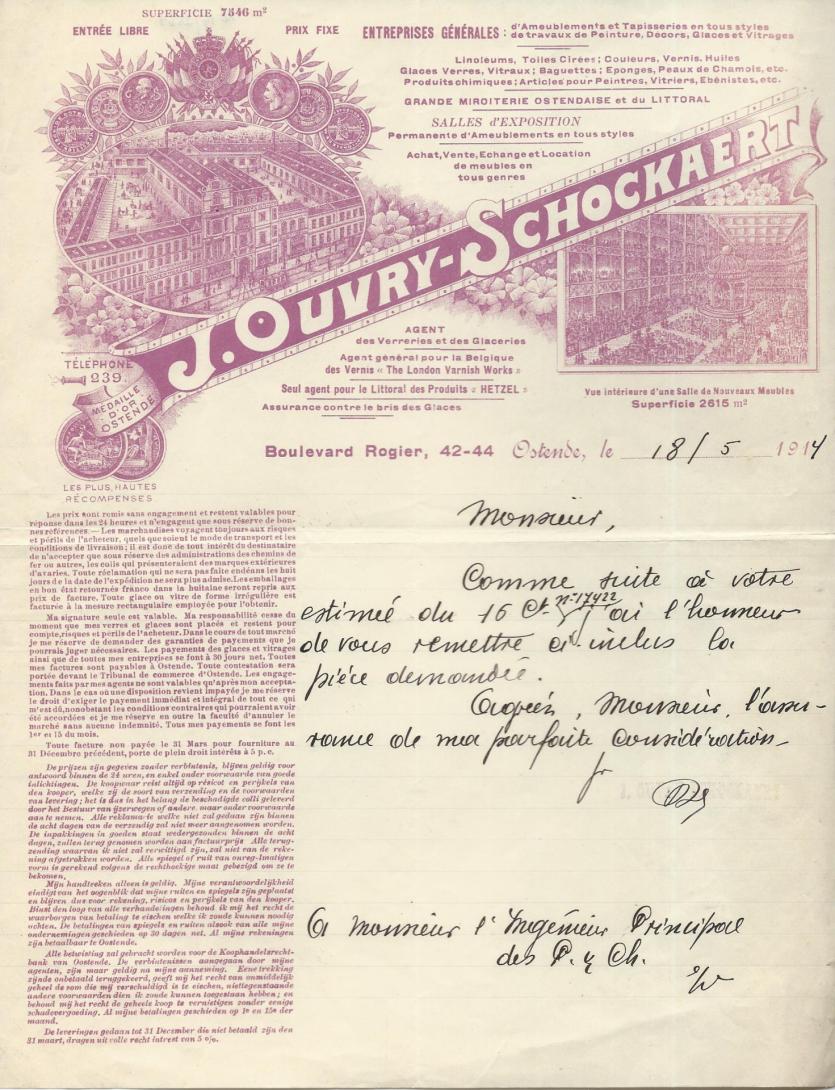 SUPERFICIE 7546 m²
ENTRÉE LIBRE
PRIX FIXE
ENTREPRISES GÉNÉRALES : d'Ameublements et Tapisseries en tous styles
de travaux de Peinture, Décors, Glaces et Vitrages
Linoléums, Toiles Cirées; Couleurs, Vernis, Huiles
Glaces Verres, Vitraux; Baguettes; Eponges, Peaux de Chamois, etc.
Produits chimiques; Articles pour Peintres, Vitriers, Ebénistes, etc.
GRANDE MIROITERIE OSTENDAISE et du LITTORAL
SALLES d'EXPOSITION
Permanente d'Ameublements en tous styles
Achat, Vente, Echange et Location
de meubles en
tous genres
J. OUVRY-SCHOCKAERT
AGENT
des Verreries et des Glaceries
Agent général pour la Belgique
des Vernis « The London Varnish Works »
Seul agent pour le Littoral des Produits « HETZEL »
Assurance contre le bris des Glaces
TÉLÉPHONE
239
MEDAILLE
D'OR
OSTENDE
LES PLUS HAUTES
RÉCOMPENSES
Vue intérieure d'une Salle de Nouveaux Meubles
Superficie 2615 m²
Boulevard Rogier, 42-44 Ostende, le 18/5 1914
Les prix sont remis sans engagement et restent valables pour
réponse dans les 24 heures et n'engagent que sous réserve de bon-
nes références. — Les marchandises voyagent toujours aux risques
et périls de l'acheteur, quels que soient le mode de transport et les
conditions de livraison; il est donc de tout intérêt du destinataire
de n'accepter que sous réserve des administrations des chemins de
fer ou autres, les colis qui présenteraient des marques extérieures
d'avaries. Toute réclamation qui ne sera pas faite endéans les huit
jours de la date de l'expédition ne sera plus admise. Les emballages
en bon état retournés franco dans la huitaine seront repris aux
prix de facture. Toute glace ou vitre de forme irrégulière est
facturée à la mesure rectangulaire employée pour l'obtenir.
Ma signature seule est valable. Ma responsabilité cesse du
moment que mes verres et glaces sont placés et restent pour
compte, risques et périls de l'acheteur. Dans le cours de tout marché
je me réserve de demander des garanties de payements que je
pourrais juger nécessaires. Les payements des glaces et vitrages
ainsi que de toutes mes entreprises se font à 30 jours net. Toutes
mes factures sont payables à Ostende. Toute contestation sera
portée devant le Tribunal de commerce d'Ostende. Les engage-
ments faits par mes agents ne sont valables qu'après mon accepta-
tion. Dans le cas où une disposition revient impayée je me réserve
le droit d'exiger le payement immédiat et intégral de tout ce qui
m'est dû, nonobstant les conditions contraires qui pourraient avoir
été accordées et je me réserve en outre la faculté d'annuler le
marché sans aucune indemnité. Tous mes payements se font les
1er et 15 du mois.
Toute facture non payée le 31 Mars pour fourniture au
31 Décembre précédent, porte de plein droit intérêts à 5 p. c.
De prijzen zijn gegeven zonder verbintenis, blijven geldig voor
antwoord binnen de 24 uren, en enkel onder voorwaarde van goede
inlichtingen. De koopwaar reist altijd op risico en perijkels van
den kooper, welke zij de soort van verzending en de voorwaarden
van levering; het is dus in het belang de beschadigde colli geleverd
door het Bestuur van ijzerwegen of andere, maar onder voorwaarde
aan te nemen. Alle reklamatie welke niet zal gedaan zijn binnen
de acht dagen van de verzendig zal niet meer aangenomen worden.
De inpakkingen in goeden staat wedergezonden binnen de acht
dagen, zullen terug genomen worden aan factuurprijs. Alle terug-
zending waarvan ik niet zal verwittigd zijn, zal niet van de reke-
ning afgetrokken worden. Alle spiegel of ruit van onreg-lmatigen
vorm is gerekend volgens de rechthoekige maat gebezigd om ze te
bekomen.
Mijn handteeken alleen is geldig. Mijne verantwoordelijkheid
eindigt van het oogenblik dat mijne ruiten en spiegels zijn geplaatst
en blijven dus voor rekening, risicos en perijkels van den kooper.
Binst den loop van alle verhandelingen behoud ik mij het recht de
waarborgen van betaling te eischen welke ik zoude kunnen noodig
achten. De betalingen van spiegels en ruiten alsook van alle mijne
ondernemingen geschieden op 30 dagen net. Al mijne rekeningen
zijn betaalbaar te Oostende.
Alle betwisting zal gebracht worden voor de Koophandelsrecht-
bank van Oostende. De verbintenissen aangegaan door mijne
agenten, zijn maar geldig na mijne aanneming. Eene trekking
zijnde onbetaald teruggekeerd, geeft mij het recht van onmiddelijk
geheel de som die mij verschuldigd is te eischen, niettegenstaande
andere voorwaarden dien ik zoude kunnen toegestaan hebben; en
behoud mij het recht de geheele koop te vernietigen zonder eenige
schadevergoeding. Al mijne betalingen geschieden op 1e en 15e der
maand.
De leveringen gedaan tot 31 December die niet betaald zijn den
31 maart, dragen uit volle recht intrest van 5 o/o.
Monsieur,
Comme suite à votre
estimée du 16 Ct. n° 17422 j'ai l'honneur
de vous remettre ci inclus la
pièce demandée.
Agréez, Monsieur, l'assu-
rance de ma parfaite considération
A Monsieur l'Ingénieur Principal
des P. & Ch.
E/V